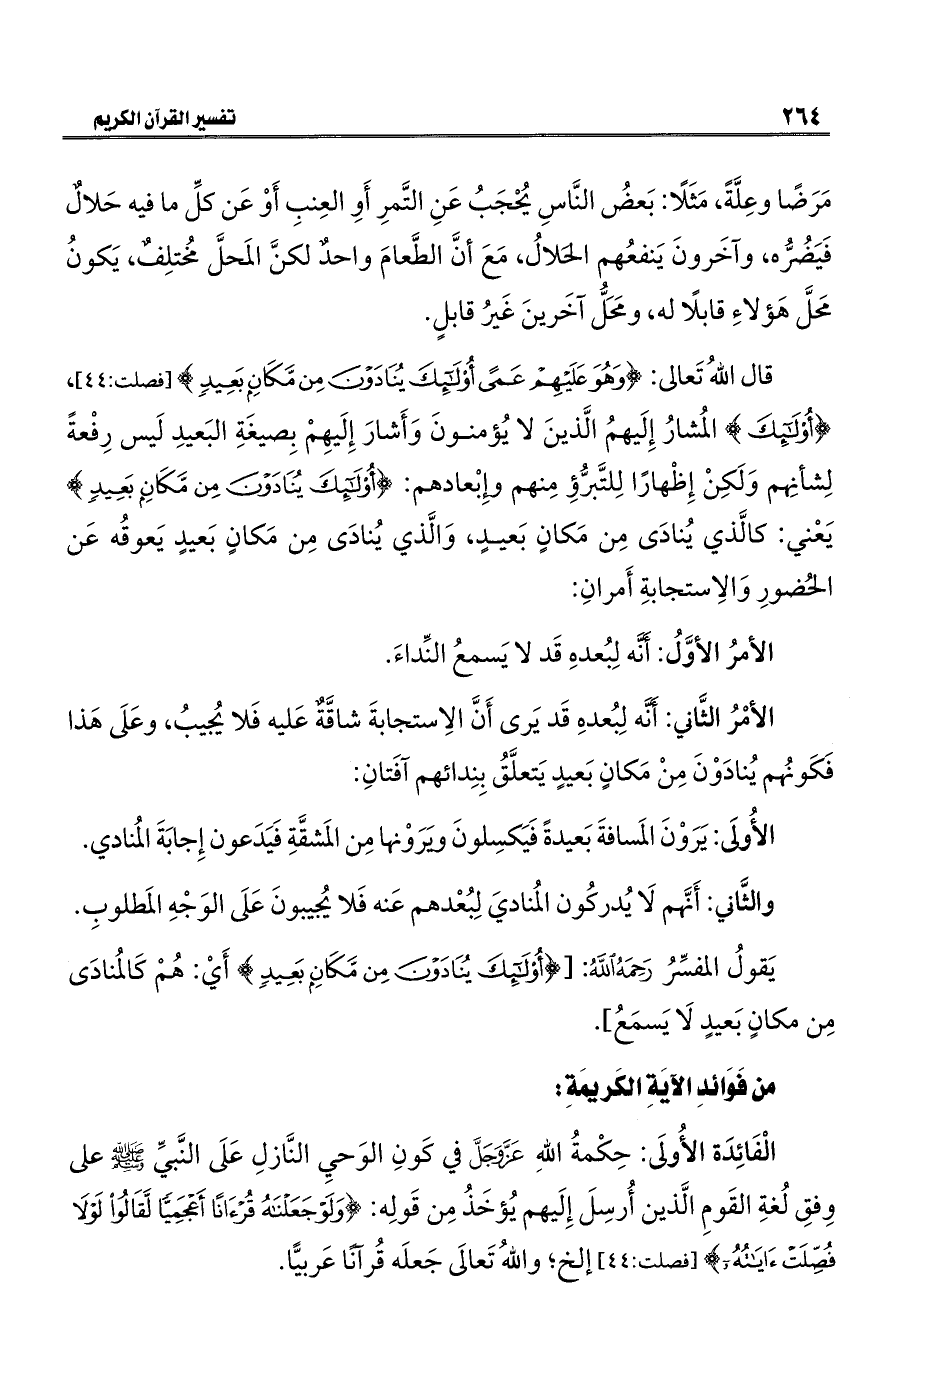 ٢٦٤ تفسير القرآن الكريم
مَرَضًا وعِلَّةً، مَثَلًا: بَعضُ النَّاسِ يُحْجَبُ عَنِ التَّمرِ أَوِ العِنبِ أَوْ عَن كلِّ ما فيه حَلالٌ
فَيَضُرُّه، وآخَرونَ يَنفعُهم الحَلالُ، مَعَ أنَّ الطَّعامَ واحدٌ لكنَّ المَحلَّ مُختلِفٌ، يَكونُ
مَحلَّ هَؤلاءِ قابلًا له، ومَحَلُّ آخَرينَ غَيرُ قابلٍ.
قال اللهُ تَعالى: ﴿وَهُوَ عَلَيْهِمْ عَمًى أُوْلَٰٓئِكَ يُنَادَوْنَ مِن مَّكَانٍ بَعِيدٍ﴾ [فصلت:٤٤]،
﴿أُوْلَٰٓئِكَ﴾ المُشارُ إِلَيهِمُ الَّذينَ لا يُؤمنونَ وَأَشارَ إِلَيهِمْ بِصيغَةِ البَعيدِ لَيس رِفْعةً
لِشأنِهم وَلَكِنْ إِظْهارًا لِلتَّبرُّؤِ مِنهم وإِبْعادهم: ﴿أُوْلَٰٓئِكَ يُنَادَوْنَ مِن مَّكَانٍ بَعِيدٍ﴾
يَعْني: كالَّذي يُنادَى مِن مَكانٍ بَعيدٍ، وَالَّذي يُنادَى مِن مَكانٍ بَعيدٍ يَعوقُه عَن
الحُضورِ وَالِاستجابةِ أَمرانِ:
الأمرُ الأوَّلُ: أَنَّه لِبُعدهِ قَد لا يَسمعُ النِّداءَ.
الأَمْرُ الثَّاني: أَنَّه لِبُعدهِ قَد يَرى أَنَّ الِاستجابةَ شاقَّةٌ عَليه فَلا يُجيبُ، وعَلَى هَذا
فَكَونُهم يُنادَوْنَ مِنْ مَكانٍ بَعيدٍ يَتعلَّقُ بِندائهم آفَتانِ:
الأُولَى: يَرَوْنَ المَسافةَ بَعيدةً فَيَكسلونَ ويَرَوْنها مِن المَشقَّةِ فَيَدَعون إِجابَةَ المُنادي.
والثَّاني: أَنَّهم لَا يُدركُون المُناديَ لِبُعْدهم عَنه فَلا يُجيبونَ عَلَى الوَجْهِ المَطلوبِ.
يَقولُ المفسِّرُ رَحِمَهُ اللَّهُ: [﴿أُوْلَٰٓئِكَ يُنَادَوْنَ مِن مَّكَانٍ بَعِيدٍ﴾ أَيْ: هُمْ كَالمُنادَى
مِن مكانٍ بَعيدٍ لَا يَسمَعُ].
من فَوَائدِ الآيَةِ الكَرِيمَةِ:
الْفَائِدَة الأُولَى: حِكْمةُ اللهِ عَزَّوَجَلَّ في كَونِ الوَحيِ النَّازلِ عَلَى النَّبيِّ ﷺ على
وِفقِ لُغةِ القَومِ الَّذين أُرسِلَ إِلَيهم يُؤخَذُ مِن قَولِه: ﴿وَلَوْ جَعَلْنَٰهُ قُرْءَانًا أَعْجَمِيًّا لَّقَالُواْ لَوْلَا
فُصِّلَتْ ءَايَٰتُهُۥٓ﴾ [فصلت:٤٤] إلخ؛ واللهُ تَعالَى جَعلَه قُرآنًا عَربيًّا.